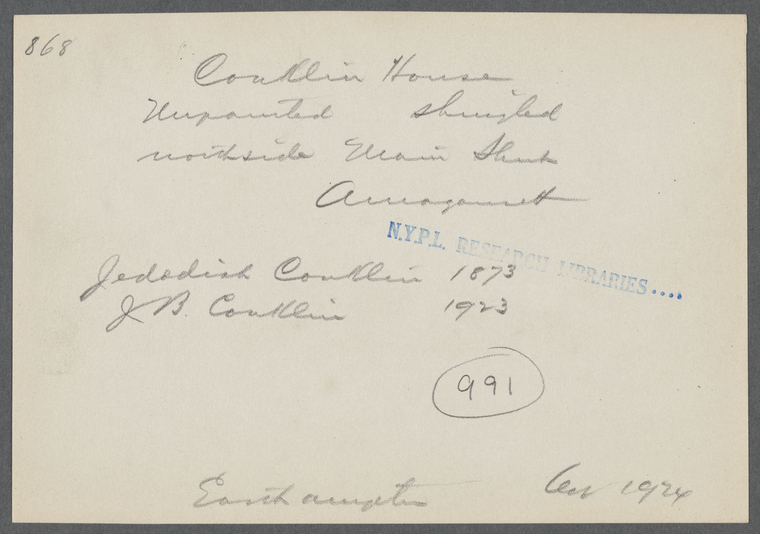 868
Conklin House
Unpainted shingled
northside Main Street
Amagansett
N.Y.P.L. RESEARCH LIBRARIES....
Jededish Conklin 1873
J B. Conklin 1923
991
Easthampton 1924